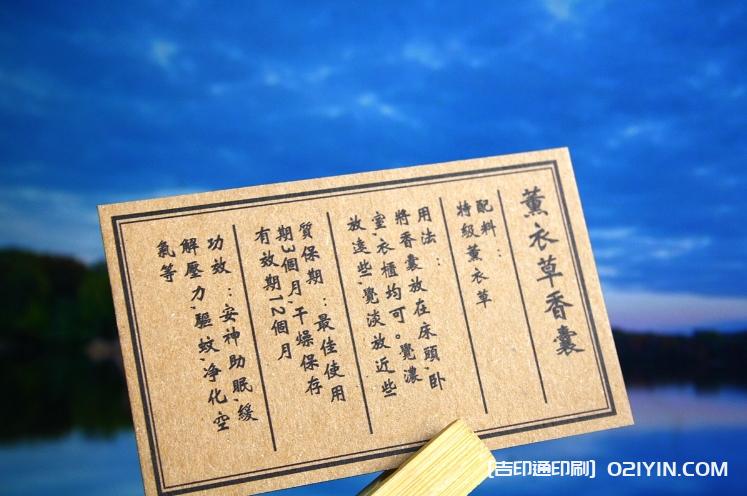 薰衣草香囊
配料：
特級薰衣草
用法：
將香囊放在床頭、卧
室、衣櫃均可。覺濃
放遠些，覺淡放近些
質保期：最佳使用
期3個月，干燥保存
有效期12個月
功效：安神助眠，緩
解壓力，驅蚊，净化空
氣等
[吉印通印刷] 02IYIN.COM